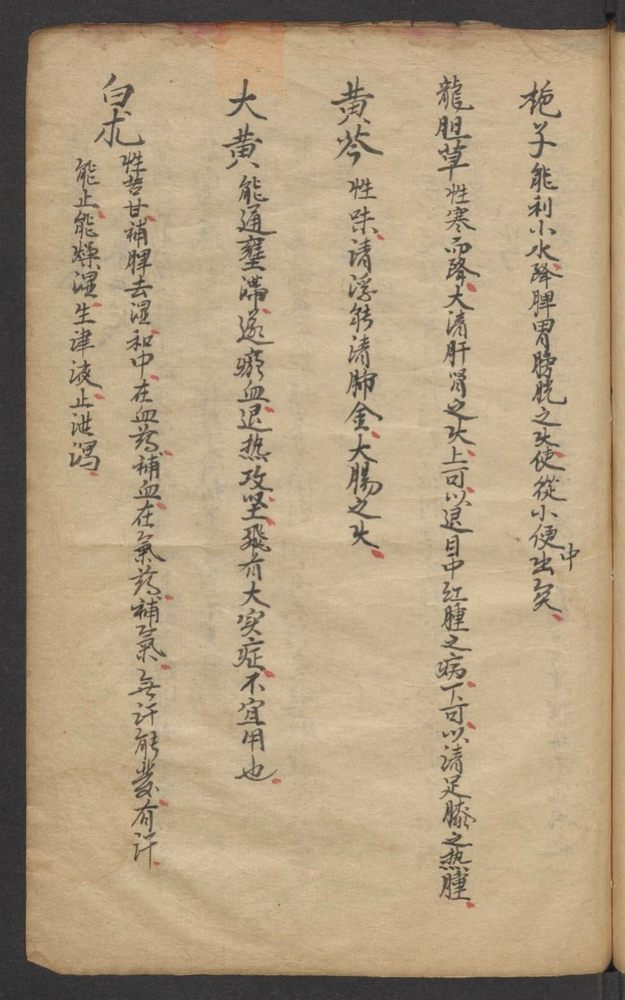 栀子能利小水降脾胃膀胱之火使從小便中出矣
龍胆草性寒而降大清肝腎之火上可以退目中紅腫之病下可以清足膝之热腫
黄芩性味清浮能清肺金大腸之火
大黄能通壅滞逐瘀血退热攻坚飛有大实症不宜用也
白术性苦甘補脾去湿和中在血葯補血在氣葯補氣無汗能發有汗
能止能燥湿生津液止泄瀉